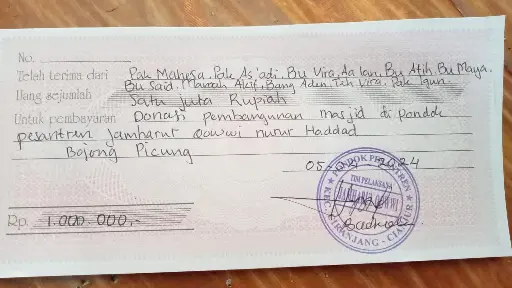 No.
Telah terima dari Pak Mahesa, Pak As'adi, Bu Vira, Aa Ian, Bu Atih, Bu Maya,
Uang sejumlah Bu Said, Mamah Akif, Bang Aden, Teh Vira, Pak Igun.
Satu juta Rupiah
Untuk pembayaran Donasi Pembangunan masjid di pondok
pesantren Jamharut Qowwi nurur Haddad
Bojong Picung
2024
PONDOK PESANTREN
TIM PELAKSANA
KEC. CIRANJANG - CIANJUR
Rp. 1.000.000,-